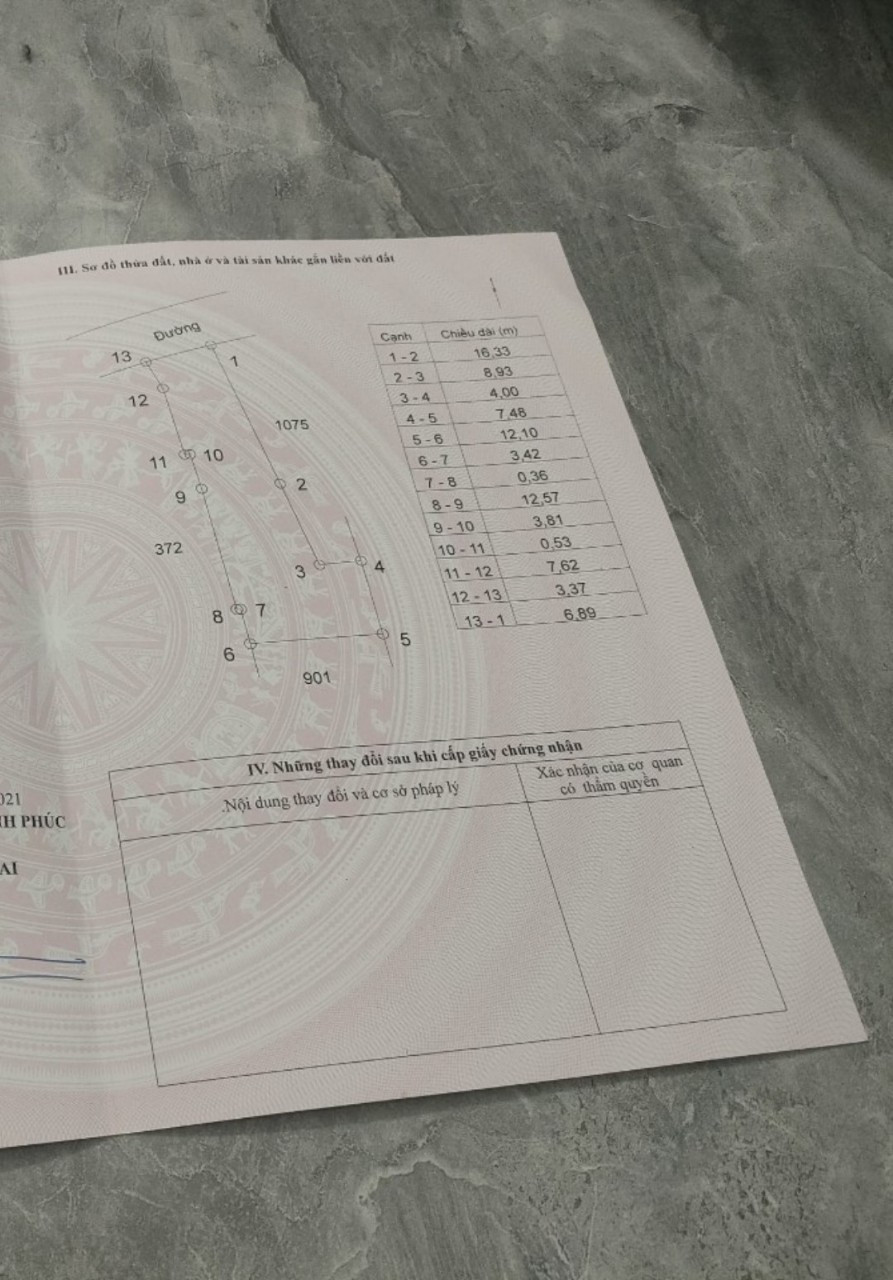 III. Sơ đồ thửa đất, nhà ở và tài sản khác gắn liền với đất
Đường
13
1
12
1075
11
10
9
2
372
3
4
8
7
6
5
901
Cạnh Chiều dài (m)
1 - 2 16,33
2 - 3 8,93
3 - 4 4,00
4 - 5 7,48
5 - 6 12,10
6 - 7 3,42
7 - 8 0,36
8 - 9 12,57
9 - 10 3,81
10 - 11 0,53
11 - 12 7,62
12 - 13 3,37
13 - 1 6,89
IV. Những thay đổi sau khi cấp giấy chứng nhận
Nội dung thay đổi và cơ sở pháp lý
Xác nhận của cơ quan
có thẩm quyền
021
NH PHÚC
AI